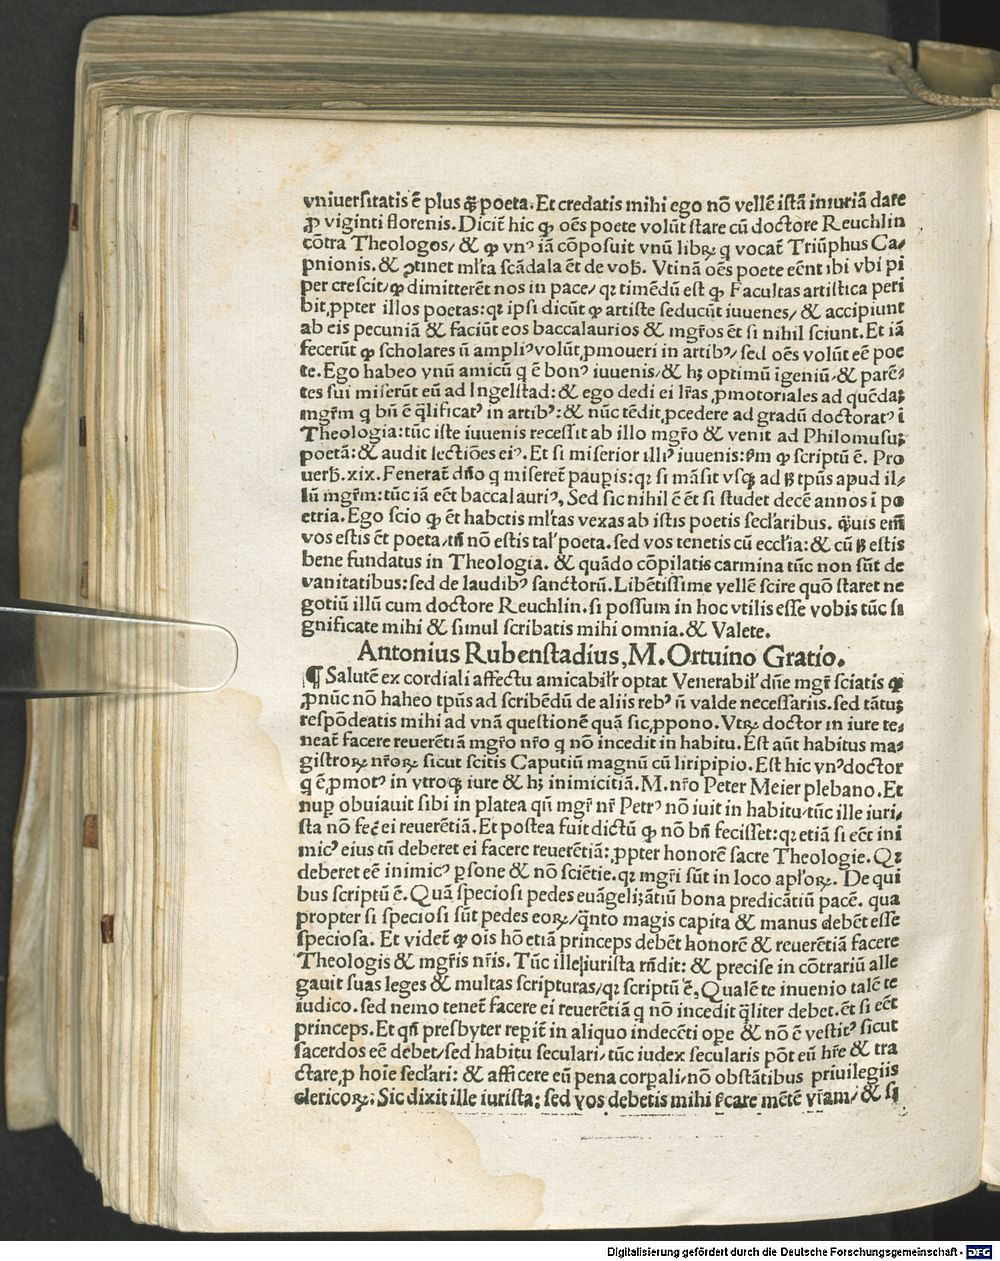 vniuersitatis ē plus q̄ȝ poeta. Et credatis mihi ego nō vellē istā iniuriā dare
ꝓ viginti florenis. Dicit̄ hic ꝙ oēs poete volūt stare cū doctore Reuchlin
cōtra Theologos/ & ꝙ vnꝰ iā cōposuit vnū libꝝ q vocat̄ Triūphus Ca⸗
pnionis. & ꝯtinet ml̄ta scādala ēt de vob̄. Vtinā oēs poete eēnt ibi vbi pi
per crescit/ ꝙ dimitterēt nos in pace/ qꝛ timēdū est ꝙ Facultas artistica peri
bit ꝓpter illos poetas: qꝛ ipsi dicūt ꝙ artiste seducūt iuuenes/ & accipiunt
ab eis pecuniā & faciūt eos baccalaurios & mgr̄os ēt si nihil sciunt. Et iā
fecerūt ꝙ scholares n̄ ampliꝰ volūt ꝓmoueri in artibꝰ/ sed oēs volūt eē poe
te. Ego habeo vnū amicū q ē bonꝰ iuuenis/ & hȝ optimū īgeniū/ & parē⸗
tes sui miserūt eū ad Ingelstad: & ego dedi ei lr̄as ꝓmotoriales ad quēdaȝ
mgr̄m q bn̄ ē q̄lificatꝰ in artibꝰ: & nūc tēdit ꝓcedere ad gradū doctoratꝰ ī
Theologia: tūc iste iuuenis recessit ab illo mgr̄o & venit ad Philomusuȝ
poetā: & audit lectiōes eiꝰ. Et si miserior illiꝰ iuuenis: ẜm ꝙ scriptū ē. Pro
uerb̄. xix. Fenerat̄ dn̄o q miseret̄ pauꝑis: qꝛ si māsit vsqꝫ ad ꝑ tp̄us apud il⸗
lū mgr̄m: tūc iā eēt baccalauriꝰ, Sed sic nihil ē ēt si studet decē annos ī po
etria. Ego scio ꝙ ēt habetis ml̄tas vexas ab istis poetis secl̄aribus. q̄uis em̄
vos estis ēt poeta/ tn̄ nō estis tal̓ poeta. sed vos tenetis cū eccl̄ia: & cū ꝑ estis
bene fundatus in Theologia. & quādo cōpilatis carmina tūc non sūt de
vanitatibus: sed de laudibꝰ sanctorū. Libētissime vellē scire quō staret ne
gotiū illū cum doctore Reuchlin. si possum in hoc vtilis esse vobis tūc si
gnificate mihi & simul scribatis mihi omnia. & Valete.
Antonius Rubenstadius, M. Ortuino Gratio.
¶ Salutē ex cordiali affectu amicabilr̓ optat Venerabil̓ dn̄e mgr̄ sciatis ꝙ
ꝓnūc nō habeo tp̄us ad scribēdū de aliis rebꝰ n̄ valde necessariis. sed tātuȝ
respōdeatis mihi ad vnā questionē quā sic ꝓpono. Vtꝝ doctor in iure te⸗
neat̄ facere reuerētiā mgr̄o nr̄o q nō incedit in habitu. Est aūt habitus ma⸗
gistroꝝ nr̄oꝝ sicut scitis Caputiū magnū cū liripipio. Est hic vnꝰ doctor
q ē ꝓmotꝰ in vtroqꝫ iure & hȝ inimicitiā. M. nr̄o Peter Meier plebano. Et
nuꝑ obuiauit sibi in platea qn̄ mgr̄ nr̄ Petrꝰ nō iuit in habitu/ tūc ille iuri⸗
sta nō fec̄ ei reuerētiā. Et postea fuit dictū ꝙ nō bn̄ fecisset: qꝛ etiā si eēt ini
micꝰ eius tn̄ deberet ei facere reuerētiā: ꝓpter honorē sacre Theologie. Qꝛ
deberet eē inimicꝰ ꝑsone & nō sciētie. qꝛ mgr̄i sūt in loco apl̄oꝝ. De qui
bus scriptū ē. Quā speciosi pedes euāgelizātiū bona predicātiū pacē. qua
propter si speciosi sūt pedes eoꝝ/ q̄nto magis capita & manus debēt esse
speciosa. Et videt̄ ꝙ ois hō etiā princeps debēt honorē & reuerētiā facere
Theologis & mgr̄is nr̄is. Tūc ille iurista rn̄dit: & precise in cōtrariū alle
gauit suas leges & multas scripturas/ qꝛ scriptū ē, Qualē te inuenio talē te
iudico. sed nemo tenet̄ facere ei reuerētiā q nō incedit q̄liter debet. ēt si eēt
princeps. Et qn̄ presbyter reꝑit̄ in aliquo indecēti oꝑe & nō ē vestitꝰ sicut
sacerdos eē debet/ sed habitu seculari/ tūc iudex secularis pōt eū hr̄e & tra
ctare ꝓ hoīe secl̄ari: & afficere eū pena corꝑali/ nō obstātibus priuilegiis
clericoꝝ: Sic dixit ille iurista: sed vos debetis mihi ẜcare mētē vr̄am/ & si
Digitalisierung gefördert durch die Deutsche Forschungsgemeinschaft - DFG